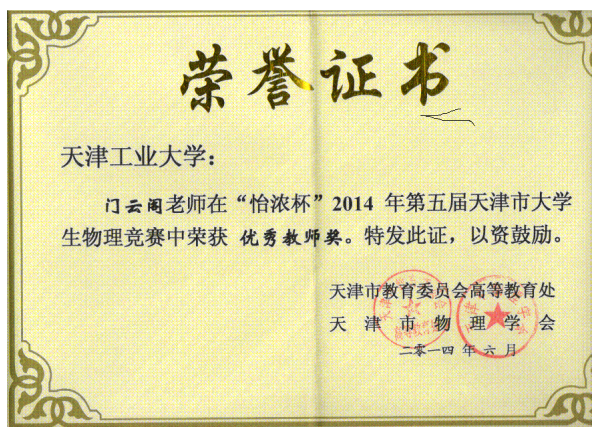 荣誉证书
天津工业大学：
门云阁老师在“怡浓杯”2014 年第五届天津市大学
生物理竞赛中荣获 优秀教师奖。特发此证，以资鼓励。
天津市教育委员会高等教育处
天津市物理学会
二零一四 年 六 月